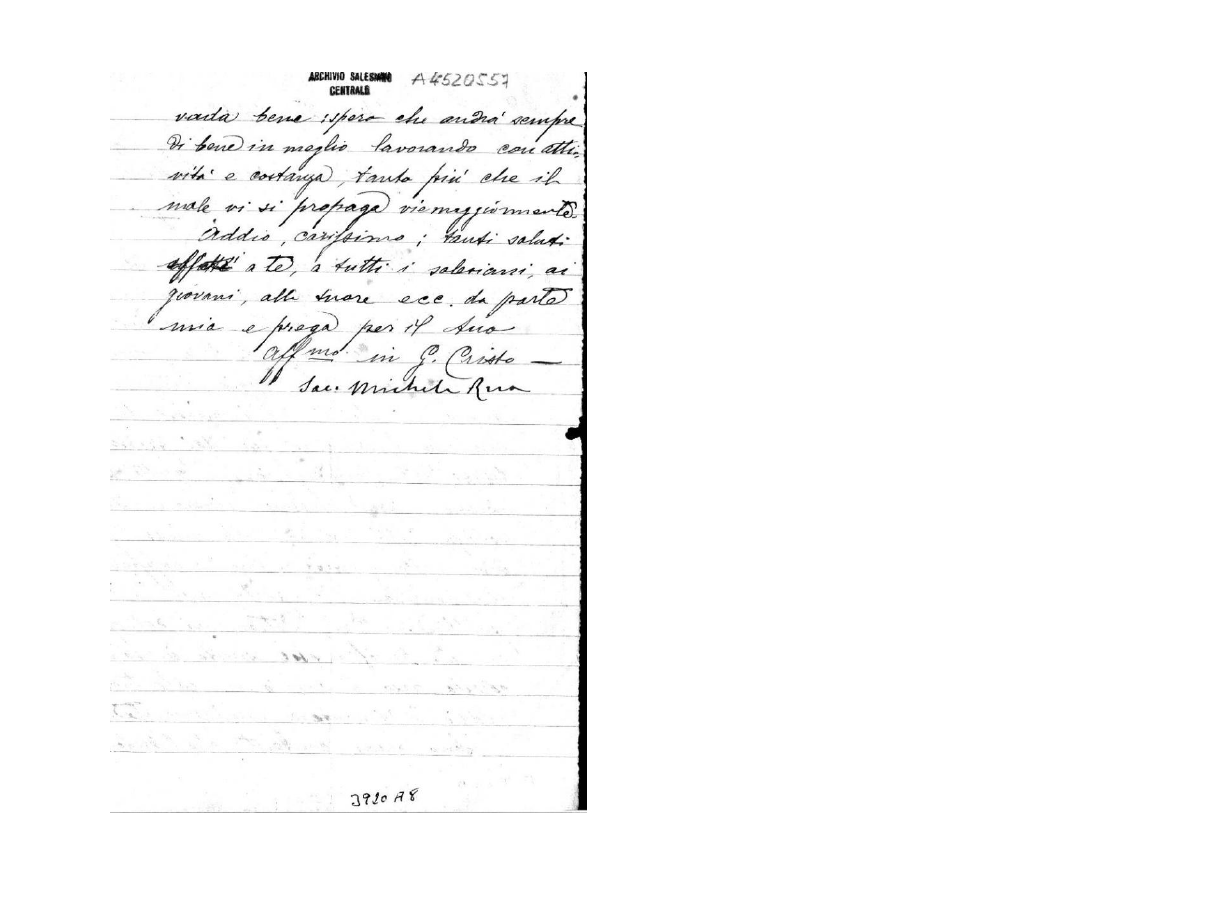 ARCHIVIO SALESIANO
CENTRALE
A4520557
vada bene: spero che andrà sempre
di bene in meglio lavorando con atti-
vità e costanza, tanto più che il
male vi si propaga viemaggiormente.
Addio, carissimo; tanti saluti
a te, a tutti i salesiani, ai
giovani, alle suore ecc. da parte
mia e prega per il tuo
Aff.mo in G. Cristo —
Sac. Michele Rua
3920 A8